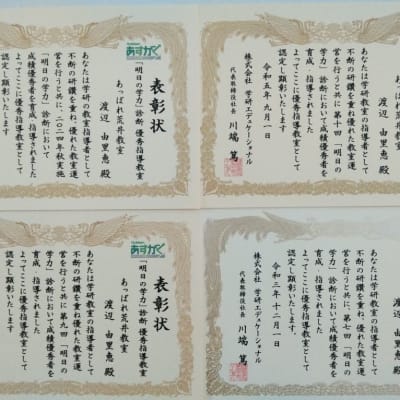 あすがく
表彰状
「明日の学力」診断優秀指導教室
あっぱれ荒井教室
渡辺 由里恵 殿
あなたは学研教室指導者として
不断の研鑽を重ね、優れた教室運
営を行うと共に、二〇二四年秋実施
「明日の学力」診断において
成績優秀者を育成・指導されました
よってここに優秀指導教室として
認定し顕彰いたします
渡
あなたは学研教室指導者として
不断の研鑽を重ね、優れた教室運
営を行うと共に第十回「明日の
学力」診断において成績優秀者を
育成・指導されました
よってここに優秀指導教室として
認定し顕彰いたします
令和五年九月一日
株式会社 学研エデュケーショナル
代表取締役社長 川端 篤
あすがく
表彰状
「明日の学力」診断優秀指導教室
あっぱれ荒井教室
渡辺 由里恵 殿
あなたは学研教室指導者として
不断の研鑽を重ね、優れた教室運
営を行うと共に第九回「明日の
学力」診断において成績優秀者を
育成・指導されました
よってここに優秀指導教室として
認定し顕彰いたします
渡
あなたは学研教室指導者として
不断の研鑽を重ね、優れた教室運
営を行うと共に第七回「明日の
学力」診断において成績優秀者を
育成・指導されました
よってここに優秀指導教室として
認定し顕彰いたします
令和三年十二月一日
株式会社 学研エデュケーショナル
代表取締役社長 川端 篤